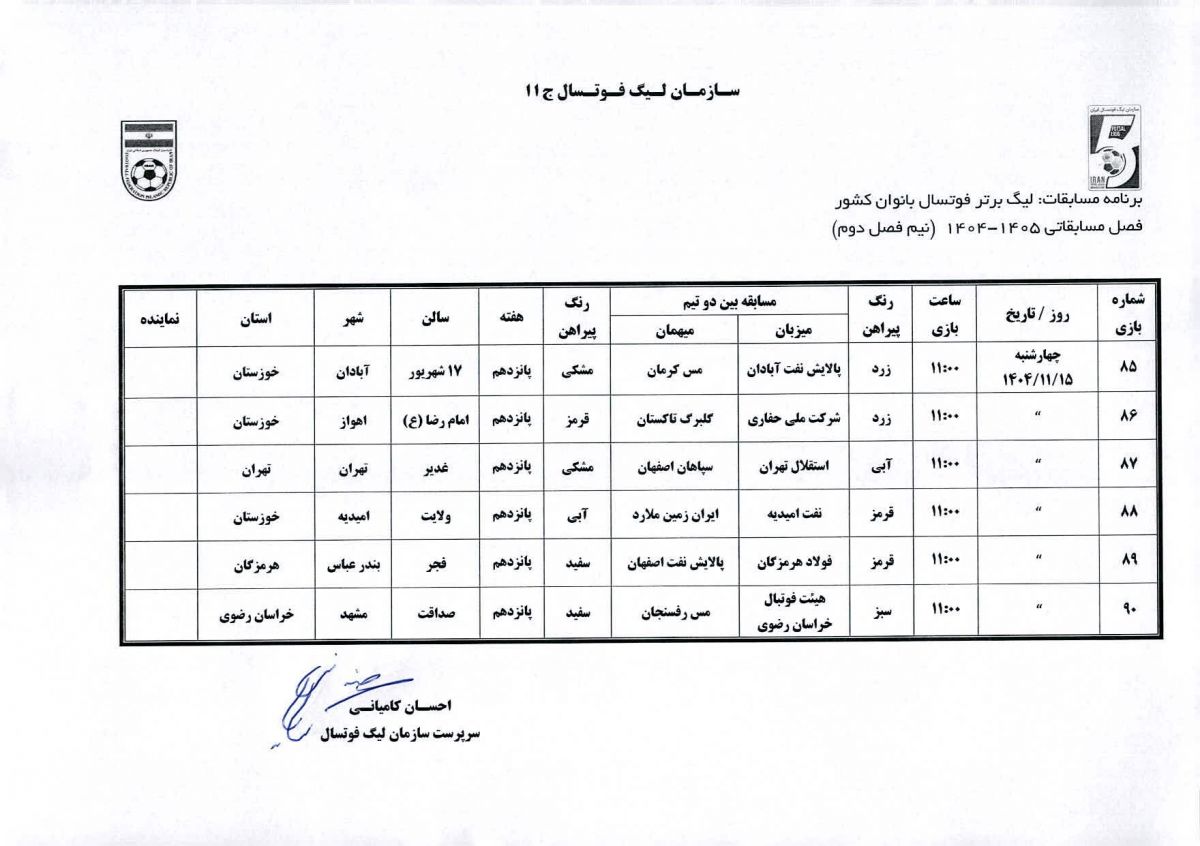 سازمان لیگ فوتسال ج ۱۱
سازمان لیگ فوتسال ایران
FUTSAL
IRAN
IRAN
برنامه مسابقات: لیگ برتر فوتسال بانوان کشور
فصل مسابقاتی ۱۴۰۵-۱۴۰۴ (نیم فصل دوم)
شماره بازی | روز / تاریخ | ساعت بازی | رنگ پیراهن | مسابقه بین دو تیم | رنگ پیراهن | هفته | سالن | شهر | استان | نماینده
میزبان | میهمان
۸۵ | چهارشنبه ۱۴۰۴/۱۱/۱۵ | ۱۱:۰۰ | زرد | پالایش نفت آبادان | مس کرمان | مشکی | پانزدهم | ۱۷ شهریور | آبادان | خوزستان
۸۶ | “ | ۱۱:۰۰ | زرد | شرکت ملی حفاری | گلبرگ تاکستان | قرمز | پانزدهم | امام رضا (ع) | اهواز | خوزستان
۸۷ | “ | ۱۱:۰۰ | آبی | استقلال تهران | سپاهان اصفهان | مشکی | پانزدهم | غدیر | تهران | تهران
۸۸ | “ | ۱۱:۰۰ | قرمز | نفت امیدیه | ایران زمین ملارد | آبی | پانزدهم | ولایت | امیدیه | خوزستان
۸۹ | “ | ۱۱:۰۰ | قرمز | فولاد هرمزگان | پالایش نفت اصفهان | سفید | پانزدهم | فجر | بندر عباس | هرمزگان
۹۰ | “ | ۱۱:۰۰ | سبز | هیئت فوتبال خراسان رضوی | مس رفسنجان | سفید | پانزدهم | صداقت | مشهد | خراسان رضوی
احسان کامیانی
سرپرست سازمان لیگ فوتسال